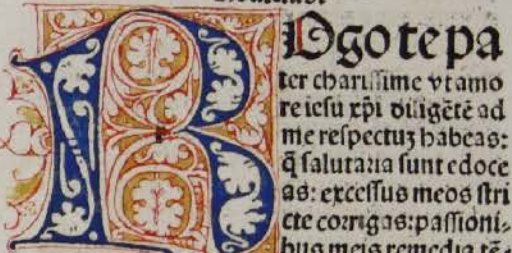 ROgo te pa
ter chariſſime vt amo
re ieſu xp̄i diligētē ad
me reſpectuꝫ habeas:
q̄ ſalutaria ſunt edoce
as: exceſſus meos ſtri
cte corrigas: paſſioni⸗
bus meis remedia tē⸗